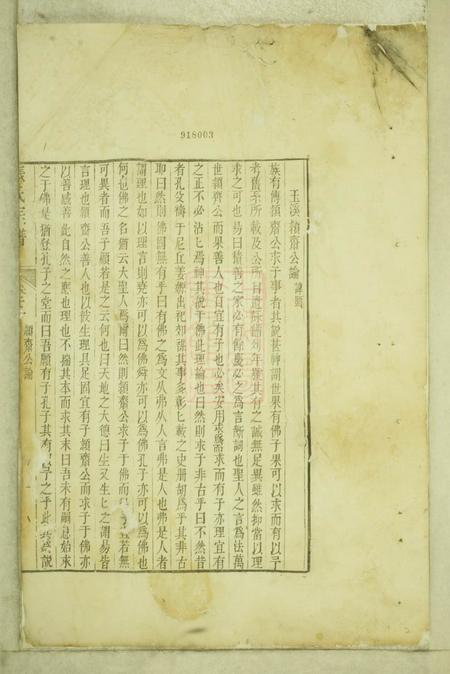 918003
玉溪頴齋公論 諱
族有傳頴齋公求子事者其說甚神謂世果有佛子果可以求而有以予
考舊系所載及公所自造 年 其有之誠無足異雖然抑當以理
求之可也易曰積善之家必有餘慶必之爲言斷詞也聖人之言爲法萬
世頴齋公而果善人也自宜有子也必矣安用求爲哉求而有子亦理宜有
之正不必沾沾焉神其說于佛此理論也曰然則求子非古乎曰不然昔
者孔父禱于尼丘姜嫄出祀郊禖其事多彰彰載之史冊胡爲乎其非古
耶曰然則佛固果有乎曰有佛之爲文从弗从人言弗是人也弗是人者
謂理也如以理言則堯亦可以爲佛舜亦可以爲佛孔子亦可以爲佛也
何也佛之名猶云大聖人焉爾曰然則頴齋公求子于佛而 宜若無
可異者而吾子顧若是之云何也曰天地之大德曰生又生生之謂易皆
言理也頴齋公善人也以彼生理具足固宜有子頴齋公而求子于佛亦
以善感善此自然之應也理也不揣其本而求其末曰吾未有嗣息始求
之于佛是猶登孔子之堂而曰吾願有子孔子其有 子之乎此 說
氏宗譜
頴齋公論